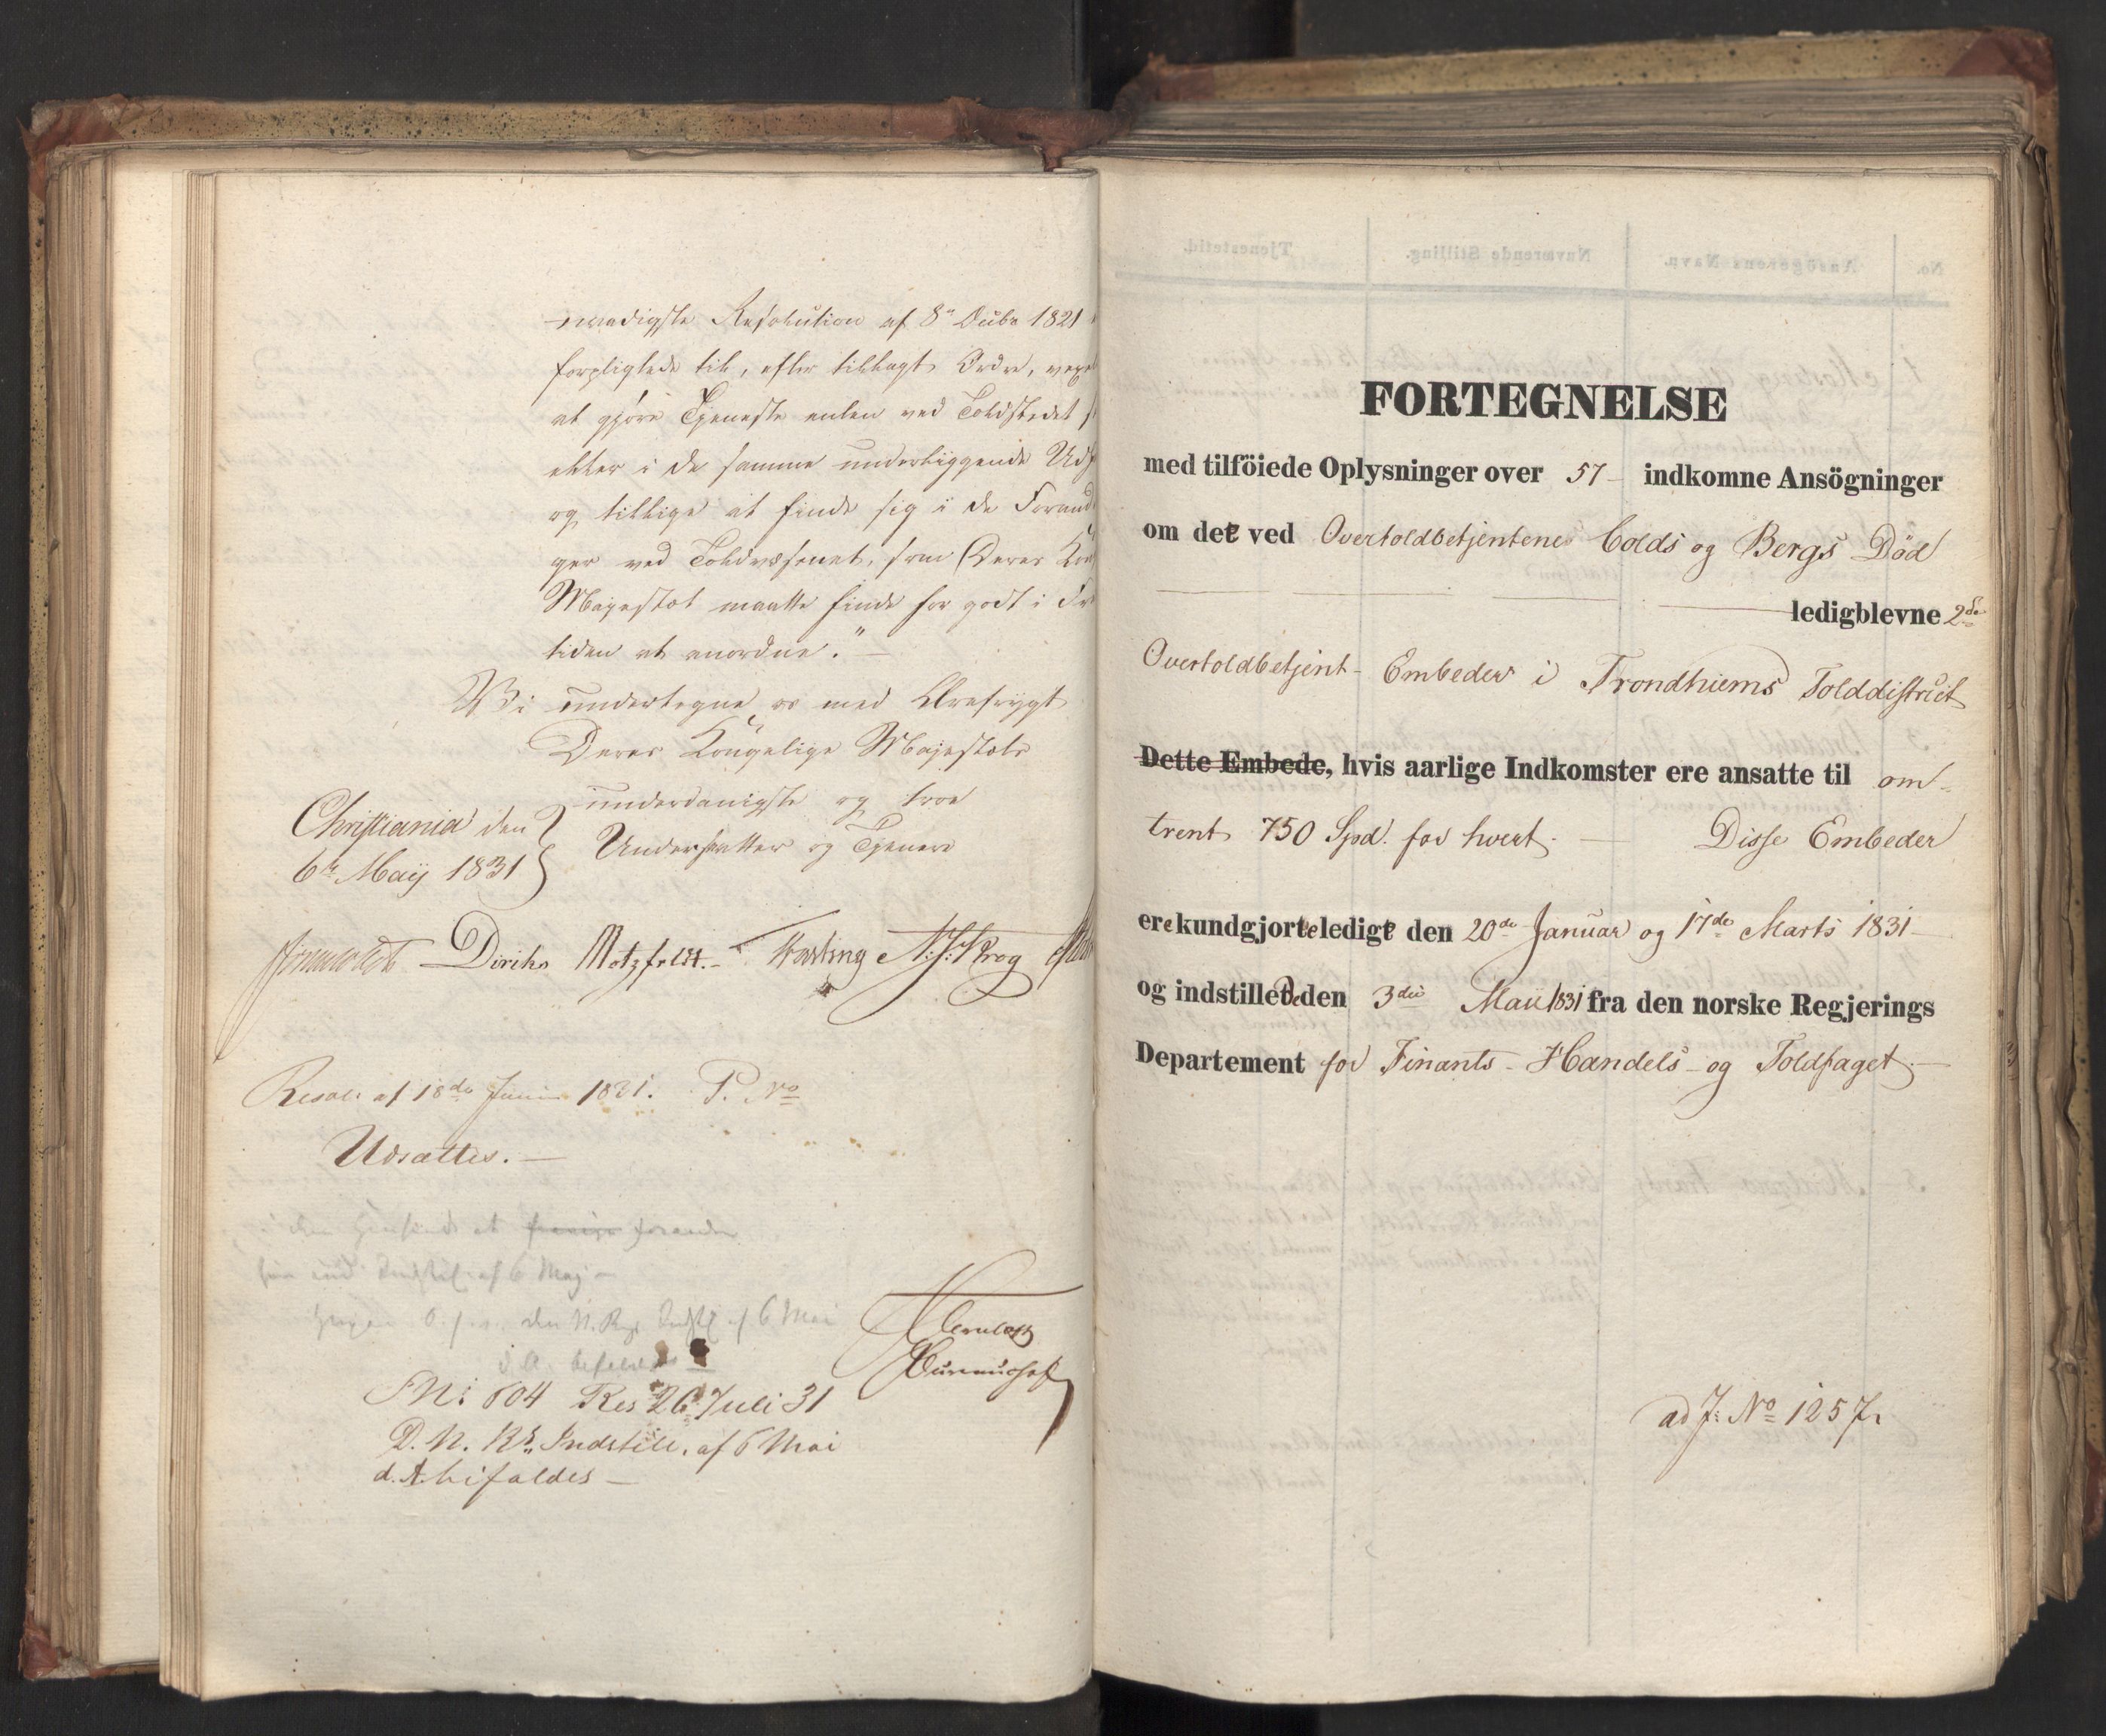 -naadigste Resolution af 8de Octbr 1821
forpligtede til, efter tillagt Ordre, vexel
at gjøre Tjeneste enten ved Toldstedet s
eller i de samme underliggende Uds
og tillige at finde sig i de Forand
ger ved Toldvæsenet, som Deres Kon
Majestæt maatte finde for godt i Fre
tiden at anordne." —
Vi undertegne os med Ærefrygt
Deres Kongelige Majestæts
underdanigste og troe
Undersaatter og Tjenere
Christiania den
6te Maij 1831
Diriks Motzfeldt. Harting N: J: Krog
Resol: af 18de Junii 1831. P. No
Udsættes. —
af 6 Maj —
den N. Regs Indst. af 6 Mai
d. A. bifaldes —
No 604 Res 26 Juli 31
D. N. Rs. Indstill. af 6 Mai
d. A. bifaldes —
FORTEGNELSE
med tilföiede Oplysninger over 57 indkomne Ansögninger
om det ved Overtoldbetjentene Colds og Bergs Död
ledigblevne 2de
Overtoldbetjent - Embeder i Trondhiems Tolddistrict
Dette Embede, hvis aarlige Indkomster ere ansatte til om-
trent 750 Spd. for hvert. — Disse Embeder
ere kundgjorte ledige den 20de Januar og 17de Marts 1831
og indstillede den 3die Maii 1831 fra den norske Regjerings
Departement for Finants - Handels - og Toldfaget. —
ad J: No 1257.